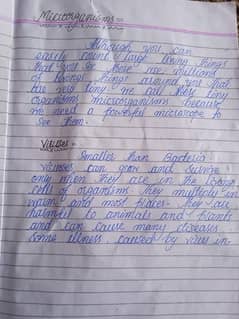 Microorganisms :-
Although you can
easily count large living things
that you see there are millions
of livings things around you that
are very tiny we call these tiny
organisms microorganisms because
we need a powerful microscope to
see them.
Viruses :-
Smaller than Bacteria
viruses can grow and survive
only when they are in the
cells of organsims they multiply in
warm and most places they are
harmful to animals and plants
and can cause many diseases
some illness caused by virus in-